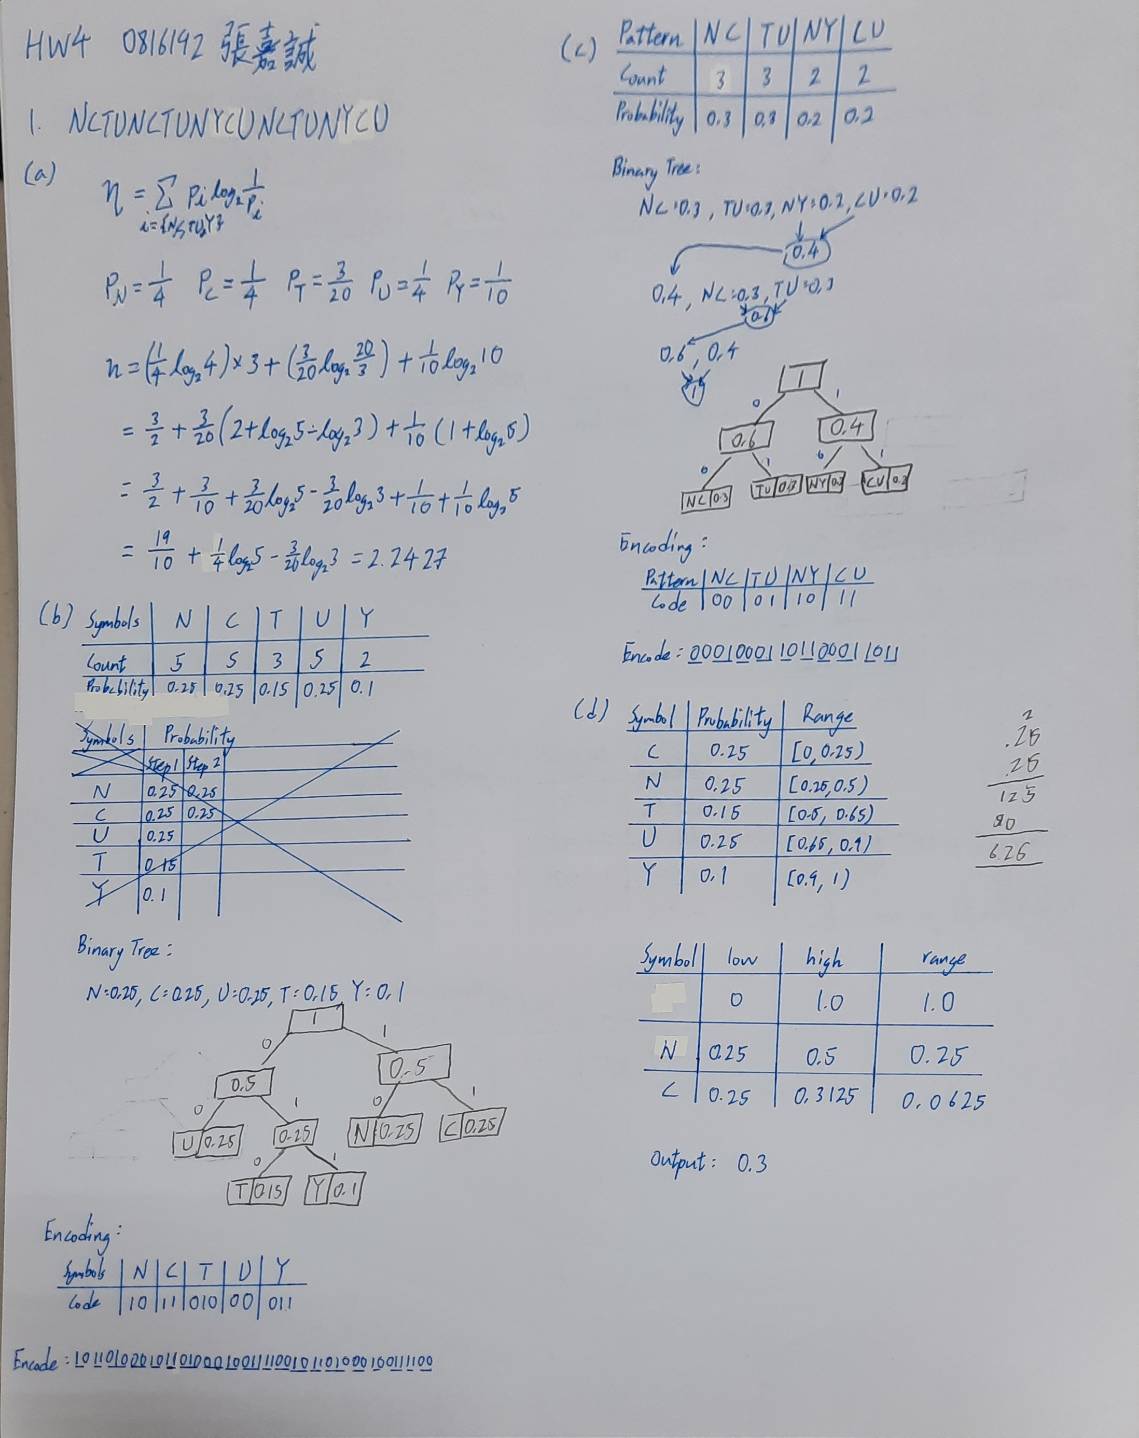 HW4 0816192 張嘉誠
1. NCTUNCTUNYCUNCTUNYCU
(a)
η = Σ pi log₂ 1/pi
i={N,C,T,U,Y}
P_N = 1/4 P_C = 1/4 P_T = 3/20 P_U = 1/4 P_Y = 1/10
η = (1/4 log₂ 4) × 3 + (3/20 log₂ 20/3) + 1/10 log₂ 10
= 3/2 + 3/20 (2 + log₂ 5 - log₂ 3) + 1/10 (1 + log₂ 5)
= 3/2 + 3/10 + 3/20 log₂ 5 - 3/20 log₂ 3 + 1/10 + 1/10 log₂ 5
= 19/10 + 1/4 log₂ 5 - 3/20 log₂ 3 = 2.2427
(b) Symbols N C T U Y
Count 5 5 3 5 2
Probability 0.25 0.25 0.15 0.25 0.1
Symbols Probability
Step 1 Step 2
N 0.25 0.25
C 0.25 0.25
U 0.25
T 0.15
Y 0.1
Binary Tree:
N=0.25, C=0.25, U=0.25, T=0.15 Y=0.1
1
0 1
0.5 0.5
0 1 0 1
U 0.25 0.25 N 0.25 C 0.25
0 1
T 0.15 Y 0.1
Encoding:
Symbols N C T U Y
Code 10 11 010 00 011
(c) Pattern NC TU NY CU
Count 3 3 2 2
Probability 0.3 0.3 0.2 0.2
Binary Tree:
NC=0.3, TU=0.3, NY=0.2, CU=0.2
0.4
0.4, NC=0.3, TU=0.3
0.6
0.6, 0.4
1
1
0 1
0.6 0.4
0 1 0 1
NC 0.3 TU 0.3 NY 0.2 CU 0.2
Encoding:
Pattern NC TU NY CU
Code 00 01 10 11
Encode: 00010001101100011011
(d) Symbol Probability Range
C 0.25 [0, 0.25)
N 0.25 [0.25, 0.5)
T 0.15 [0.5, 0.65)
U 0.25 [0.65, 0.9)
Y 0.1 [0.9, 1)
2
.25
.25
125
625
Symbol low high range
0 1.0 1.0
N 0.25 0.5 0.25
C 0.25 0.3125 0.0625
Output: 0.3
Encode: